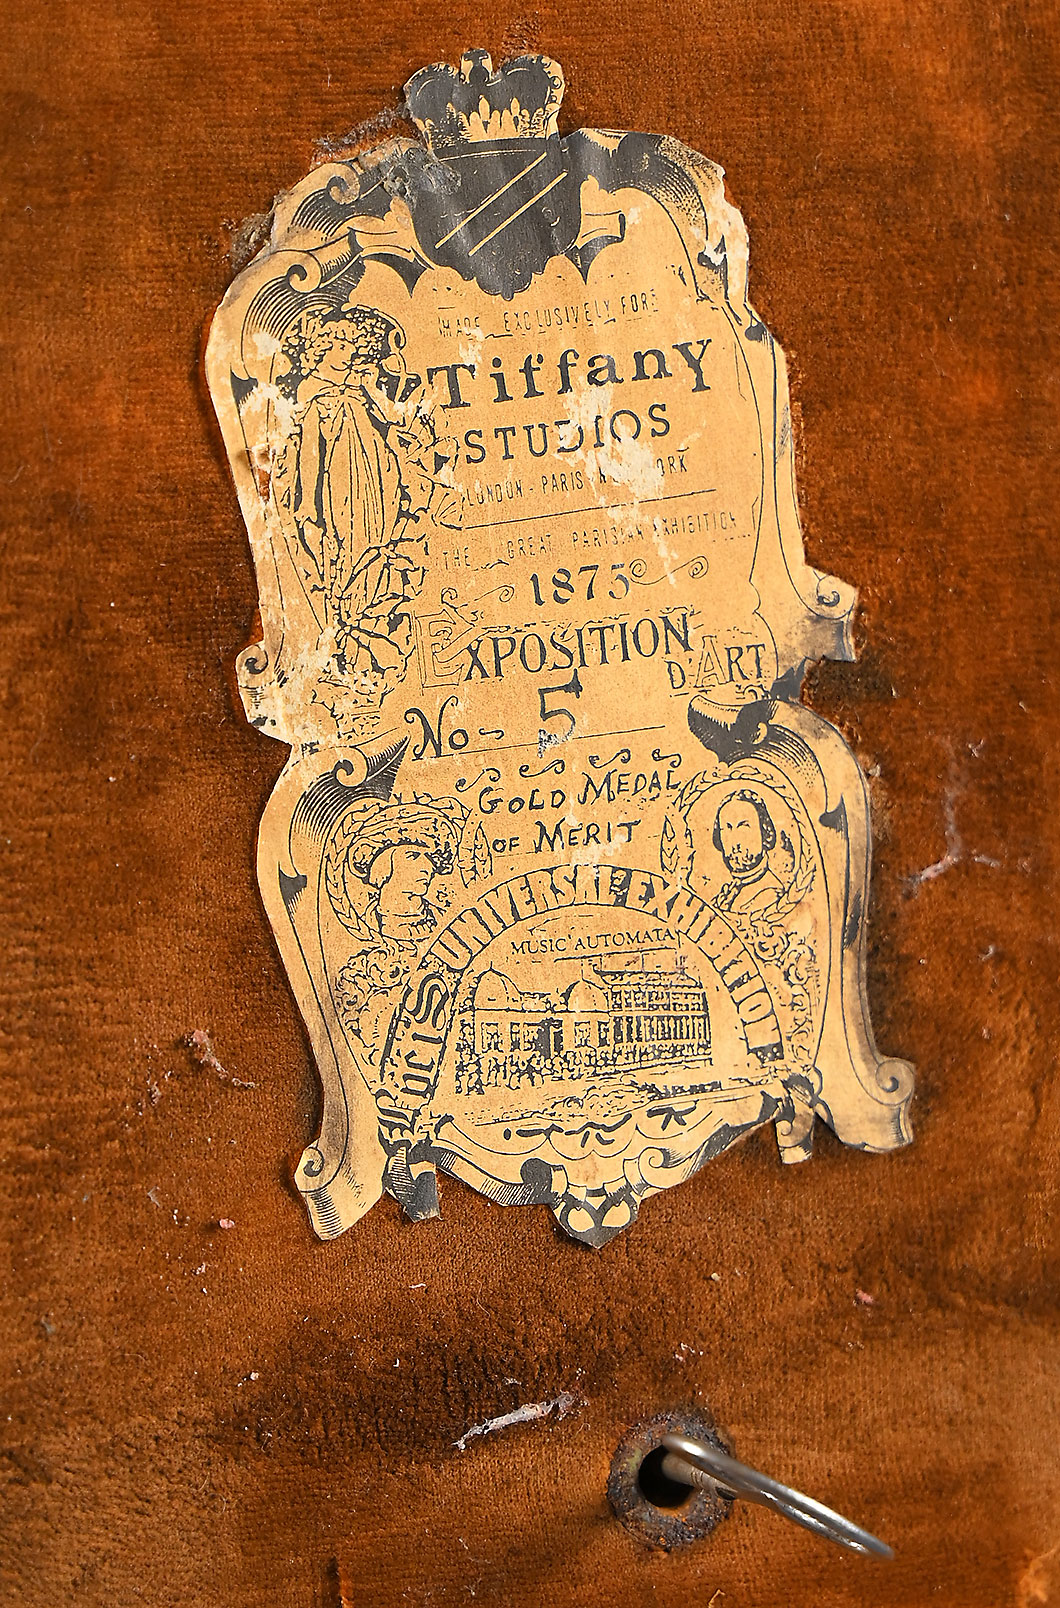 MADE EXCLUSIVELY FORE
Tiffany
STUDIOS
LONDON - PARIS - N YORK
THE GREAT PARISIAN EXHIBITION
1875
EXPOSITION
D'ART
No- 5
GOLD MEDAL
OF MERIT
PARIS UNIVERSAL EXHIBITION
MUSIC AUTOMATA